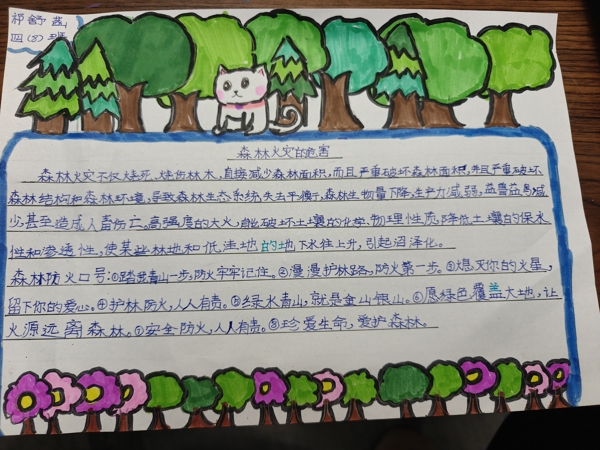 祁舒茜
四(8)班
森林火灾的危害
森林火灾不仅烧死、烧伤林木,直接减少森林面积,而且严重破坏森林面积,并且严重破坏
森林结构和森林环境,导致森林生态系统失去平衡,森林生物量下降,生产力减弱,益兽益鸟减
少,甚至造成人畜伤亡,高强度的大火,能破坏土壤的化学、物理性质,降低土壤的保水
性和渗透性,使某些林地和低洼地的地下水位上升,引起沼泽化。
森林防火口号:①踏步青山一步,防火牢牢记住。②漫漫护林路,防火第一步。③熄灭你的火星,
留下你的爱心。④护林防火,人人有责。⑤绿水青山,就是金山银山。⑥愿绿色覆盖大地,让
火源远离森林。⑦安全防火,人人有责。⑧珍爱生命,爱护森林。